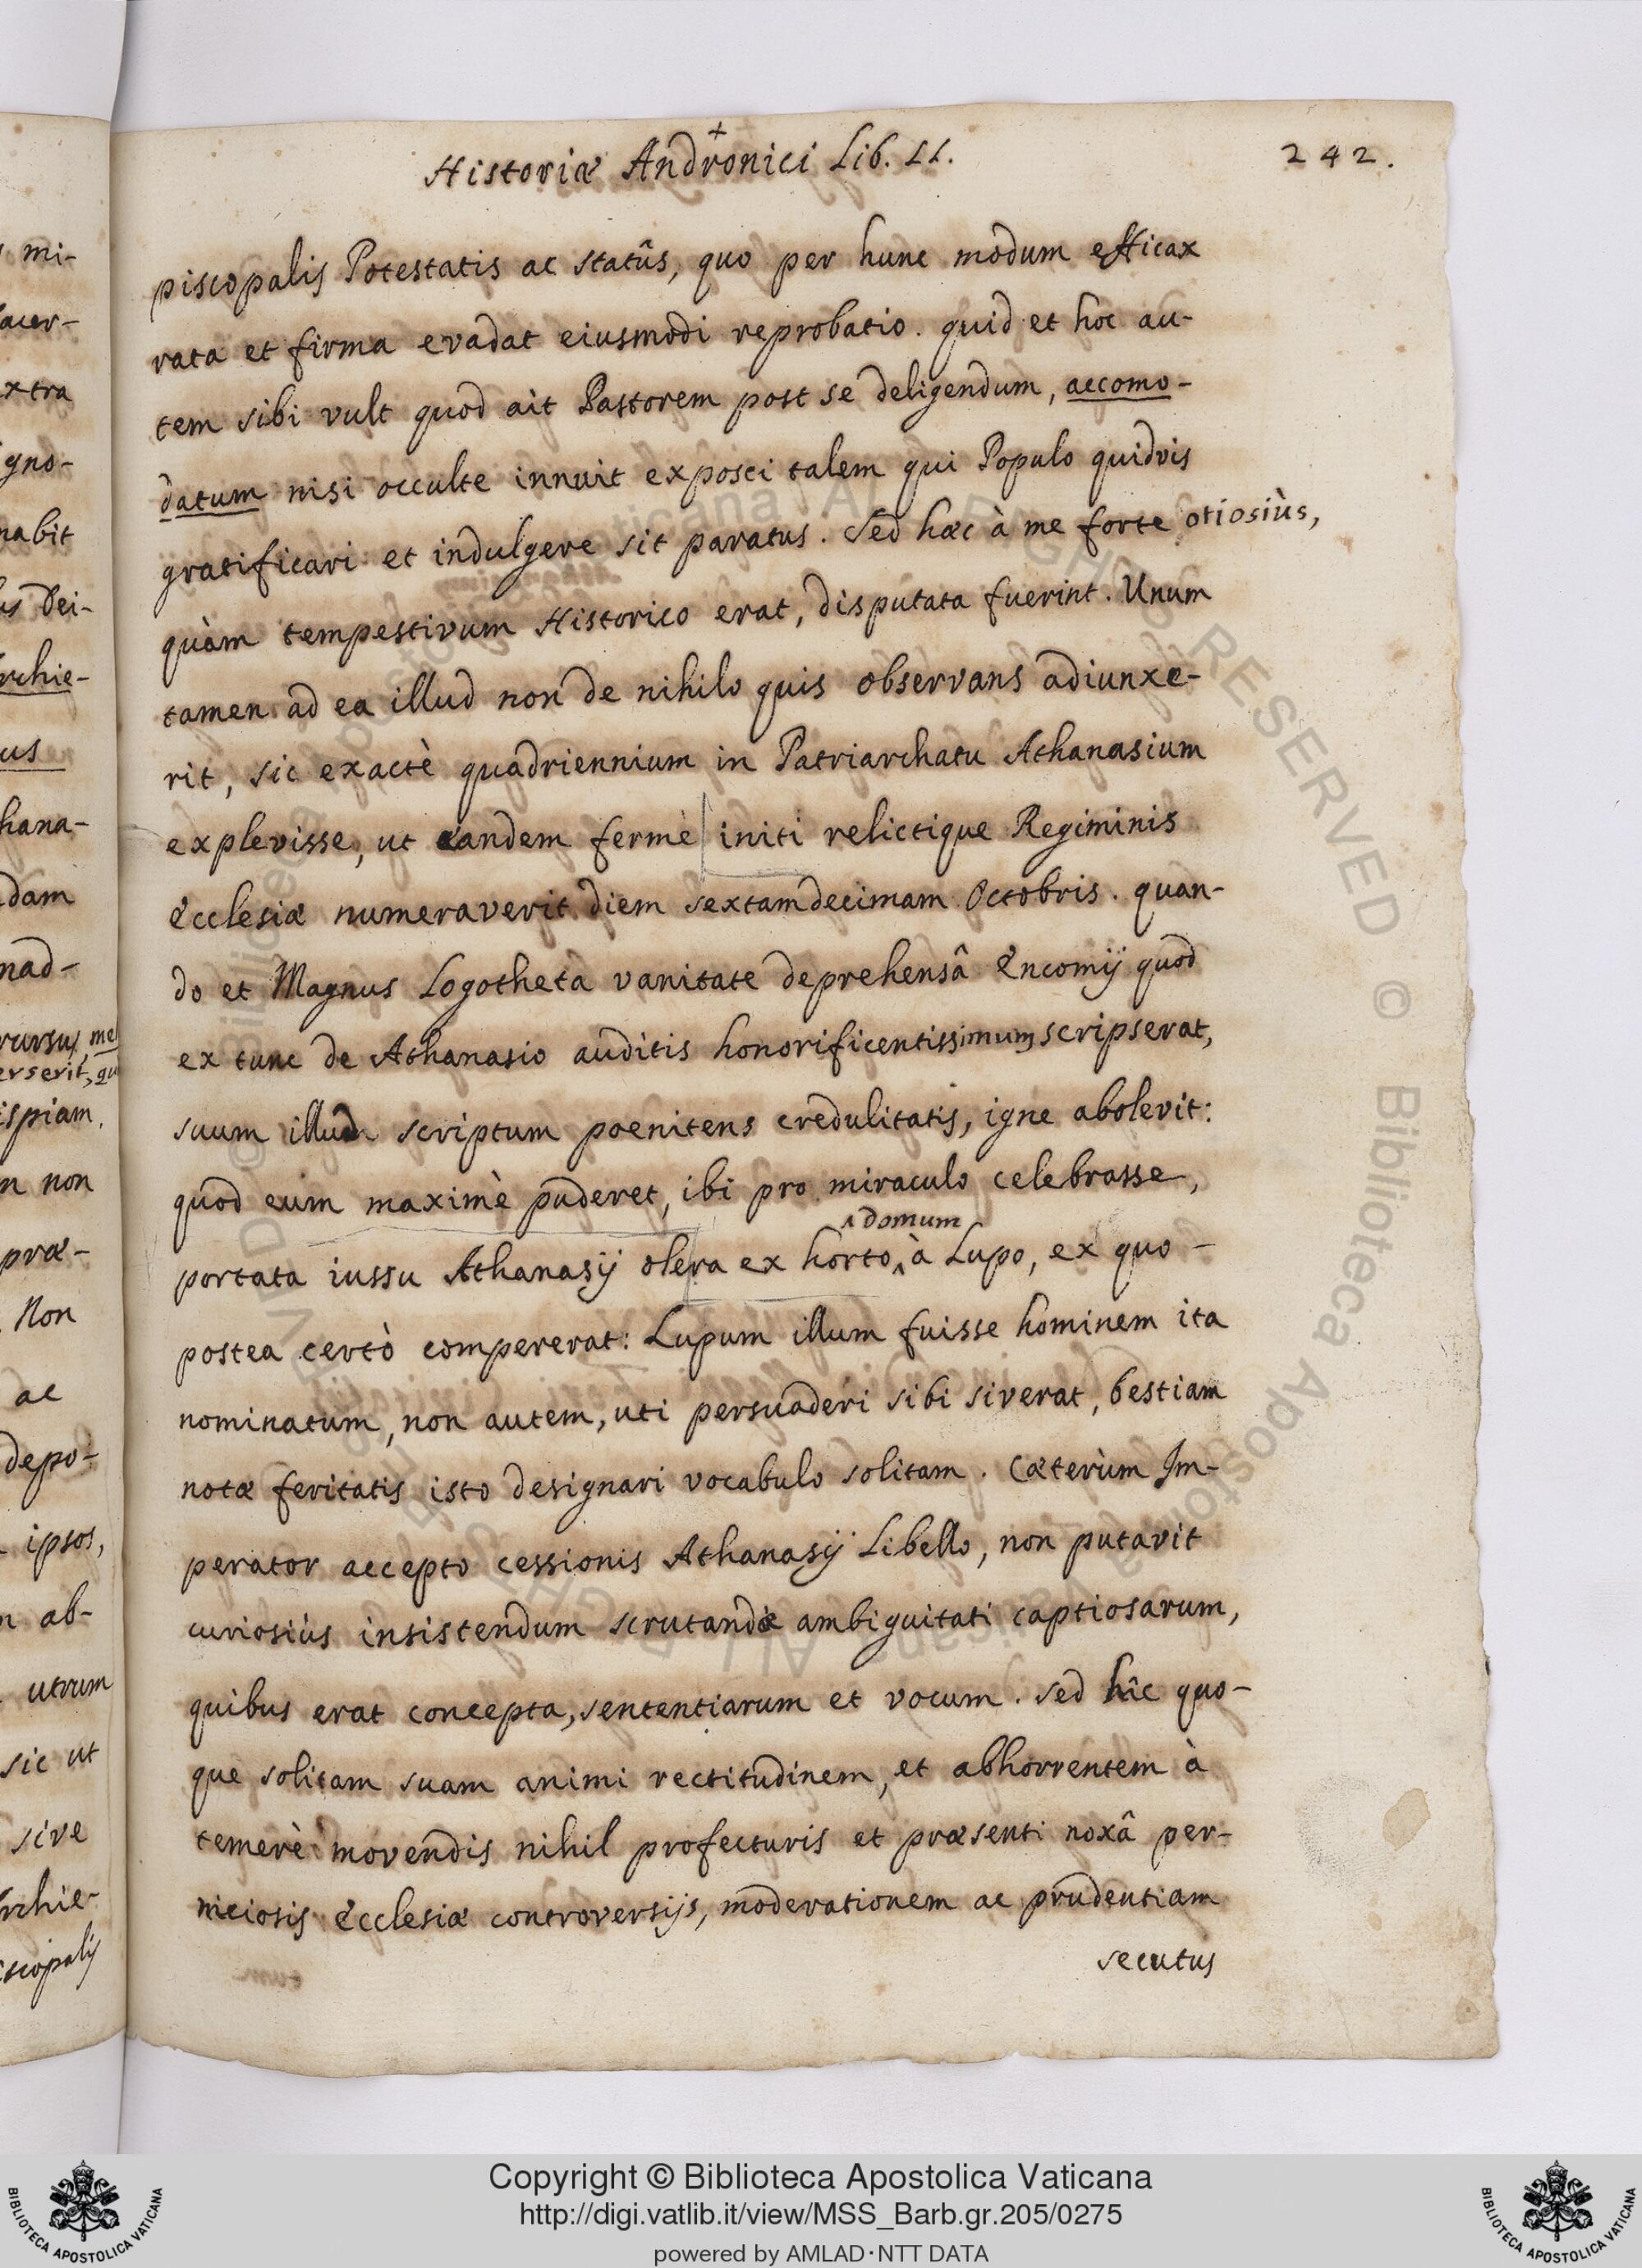 Historiæ Andronici Lib. II.
242.
piscopalis Potestatis ac statûs, quo per hunc modum efficax
rata et firma evadat eiusmodi reprobatio. quid et hoc au-
tem sibi vult quod ait Pastorem post se deligendum, accomo-
datum nisi occulte innuit exposci talem qui Populo quidvis
gratificari et indulgere sit paratus. Sed hæc à me forte otiosiùs,
quàm tempestivum Historico erat, disputata fuerint. Unum
tamen ad ea illud non de nihilo quis observans adiunxe-
rit, sic exactè quadriennium in Patriarchatu Athanasium
explevisse, ut eandem fermè initi relictique Regiminis
Ecclesiæ numeraverit diem sextamdecimam Octobris. quan-
do et Magnus Logotheta vanitate deprehensâ Encomij quod
ex tunc de Athanasio auditis honorificentissimum scripserat,
suum illud scriptum poenitens credulitatis, igne abolevit:
quod eum maximè puderet, ibi pro miraculo celebrasse,
domum
portata iussu Athanasij olera ex horto à Lupo, ex quo -
postea certò compererat: Lupum illum fuisse hominem ita
nominatum, non autem, uti persuaderi sibi siverat, bestiam
notæ feritatis isto designari vocabulo solitam. Cæterùm Im-
perator accepto cessionis Athanasij Libello, non putavit
curiosiùs insistendum scrutandæ ambiguitati captiosarum,
quibus erat concepta, sententiarum et vocum. Sed hîc quo-
que solitam suam animi rectitudinem, et abhorrentem à
temerè movendis nihil profecturis et præsenti noxâ per-
niciosis Ecclesiæ controversijs, moderationem ac prudentiam
secutus
mi-
xtra
gno-
nabit
Dei-
rchie-
us
hana-
dam
nad-
rursus, me
erserit, qu
ispiam.
non
præ-
Non
ac
depo-
ipsos,
ab-
utrum
sic ut
sive
rchie-
iscopalis
Copyright © Biblioteca Apostolica Vaticana
http://digi.vatlib.it/view/MSS_Barb.gr.205/0275
powered by AMLAD·NTT DATA
BIBLIOTECA APOSTOLICA VATICANA
BIBLIOTECA APOSTOLICA VATICANA